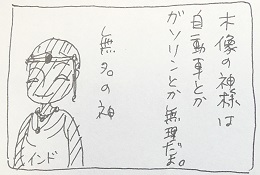 木像の神様は
自動車とか
ガソリンとか無理だよ。
無名の神
インド